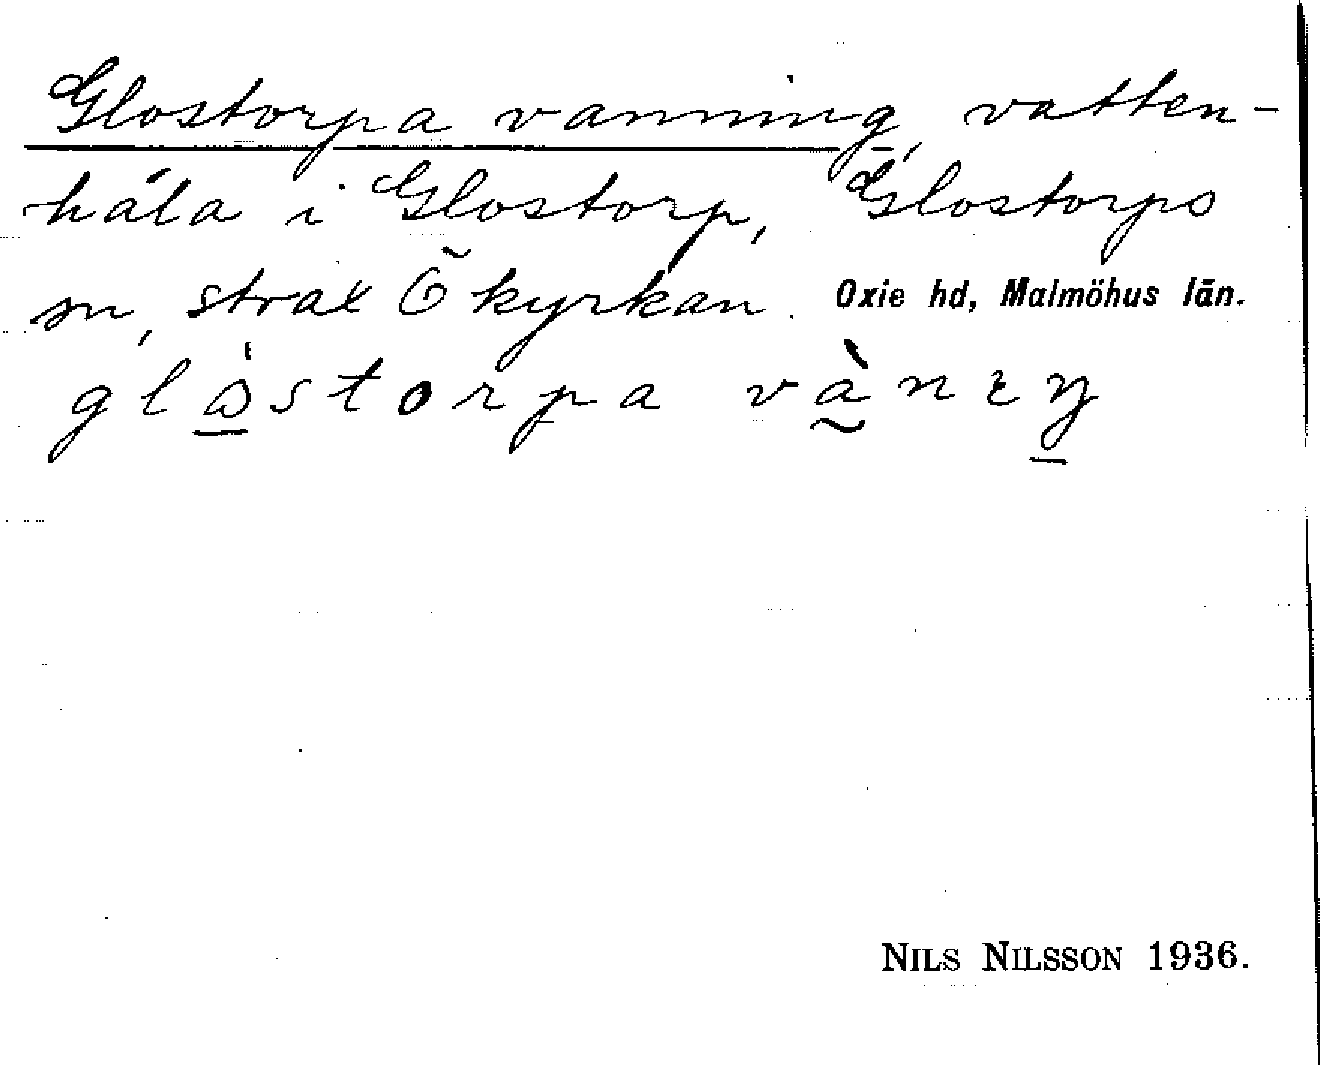 Glostorpa vanning, vatten-
håla i Glostorp, Glostorps
sn, strax Ö kyrkan. Oxie hd, Malmöhus län.
NILS NILSSON 1936.